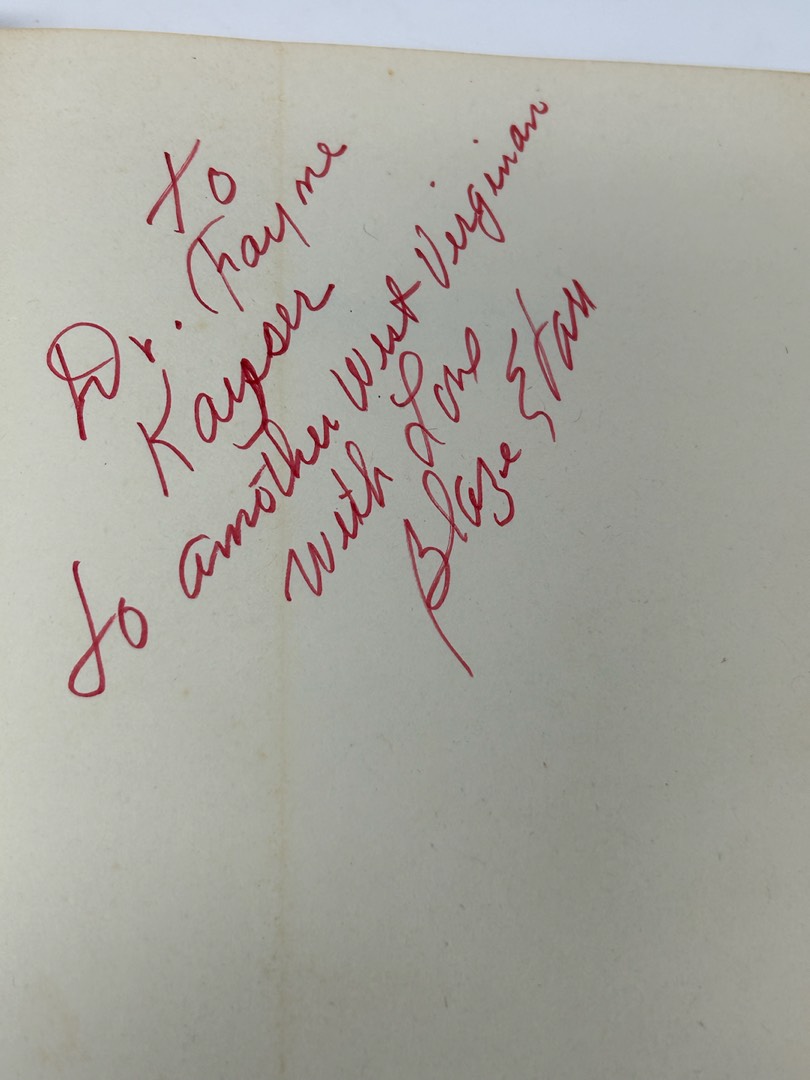 To
Dr. Fayne
Kayser
to another West Virginan
With Love
Blaze Starr